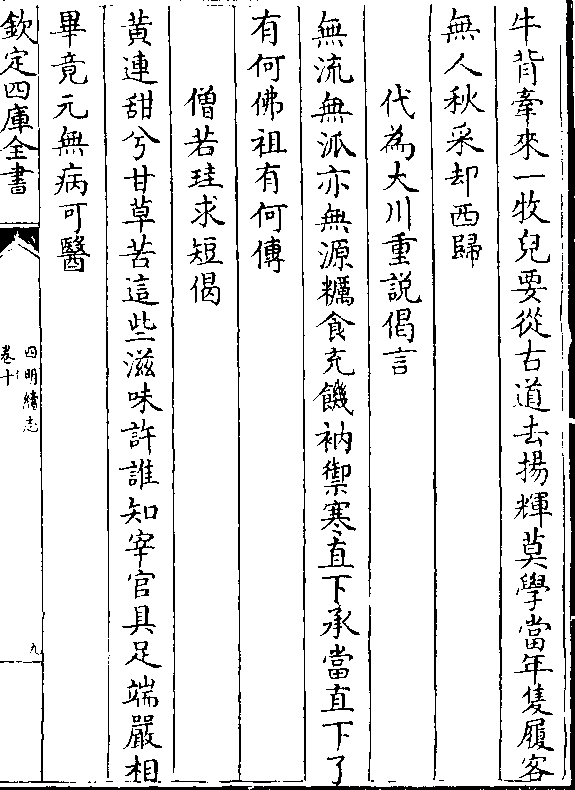 牛背牽來一牧兒要從古道去揚輝莫學當年隻履客
無人秋采却西歸
代為大川重説偈言
無流無派亦無源糲食充饑衲禦寒直下承當直下了
有何佛祖有何傳
僧若珪求短偈
黄連甜兮甘草苦這些滋味許誰知宰官具足端嚴相
畢竟元無病可醫
欽定四庫全書
四明續志
卷十
九